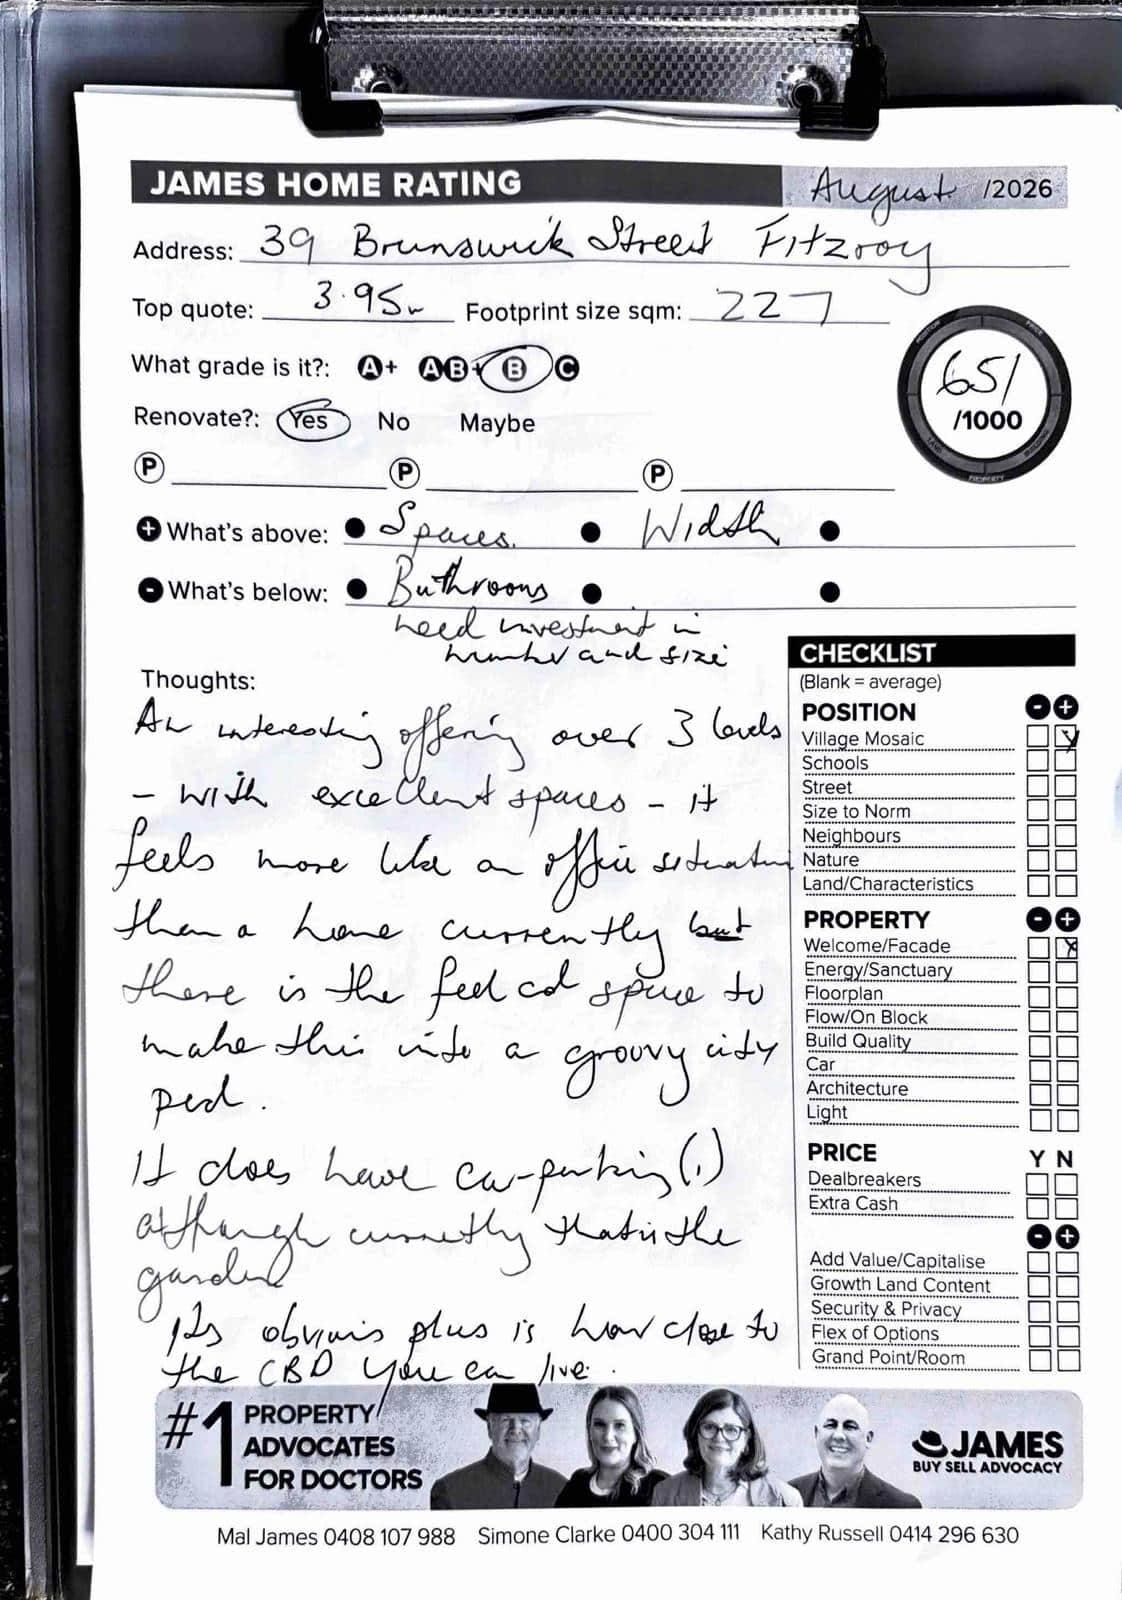 JAMES HOME RATING August /2026
Address: 39 Brunswick Street Fitzroy
Top quote: 3.95m Footprint size sqm: 227
What grade is it?: A+ AB+ B C
651
/1000
Renovate?: Yes No Maybe
P P P
+ What's above: • Spaces. • Width •
- What's below: • Bathrooms • •
need investment in
number and size
Thoughts:
An interesting offering over 3 levels
- with excellent spaces - it
feels more like an office situation
than a home currently but
there is the feel and space to
make this into a groovy city
pad.
It does have car-parking (1)
although currently that is the
garden
Its obvious plus is how close to
the CBD you can live.
CHECKLIST
(Blank = average)
POSITION - +
Village Mosaic
Schools
Street
Size to Norm
Neighbours
Nature
Land/Characteristics
PROPERTY - +
Welcome/Facade
Energy/Sanctuary
Floorplan
Flow/On Block
Build Quality
Car
Architecture
Light
PRICE Y N
Dealbreakers
Extra Cash
- +
Add Value/Capitalise
Growth Land Content
Security & Privacy
Flex of Options
Grand Point/Room
#1 PROPERTY
ADVOCATES
FOR DOCTORS
JAMES
BUY SELL ADVOCACY
Mal James 0408 107 988 Simone Clarke 0400 304 111 Kathy Russell 0414 296 630